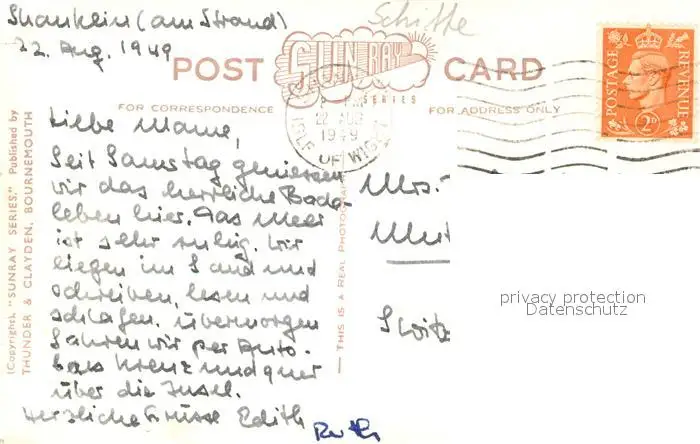 Shanklin (am Strand)
22. Aug. 1949
Schiffe
POST CARD
SUN RAY
SERIES
FOR CORRESPONDENCE
FOR ADDRESS ONLY
22 AUG
1949
ISLE OF WIGHT
POSTAGE
REVENUE
2D
Liebe Mama,
Seit Samstag geniessen
wir das herrliche Bade-
leben hier. Das Meer
ist sehr ruhig. Wir
liegen im Sand und
schreiben, lesen und
schlafen. Übermorgen
fahren wir per Auto-
bus kreuz und quer
über die Insel.
Herzliche Grüsse Edith
Ruth
Mrs.
Switz
(Copyright). "SUNRAY SERIES." Published by
THUNDER & CLAYDEN, BOURNEMOUTH
THIS IS A REAL PHOTOGRA
privacy protection
Datenschutz